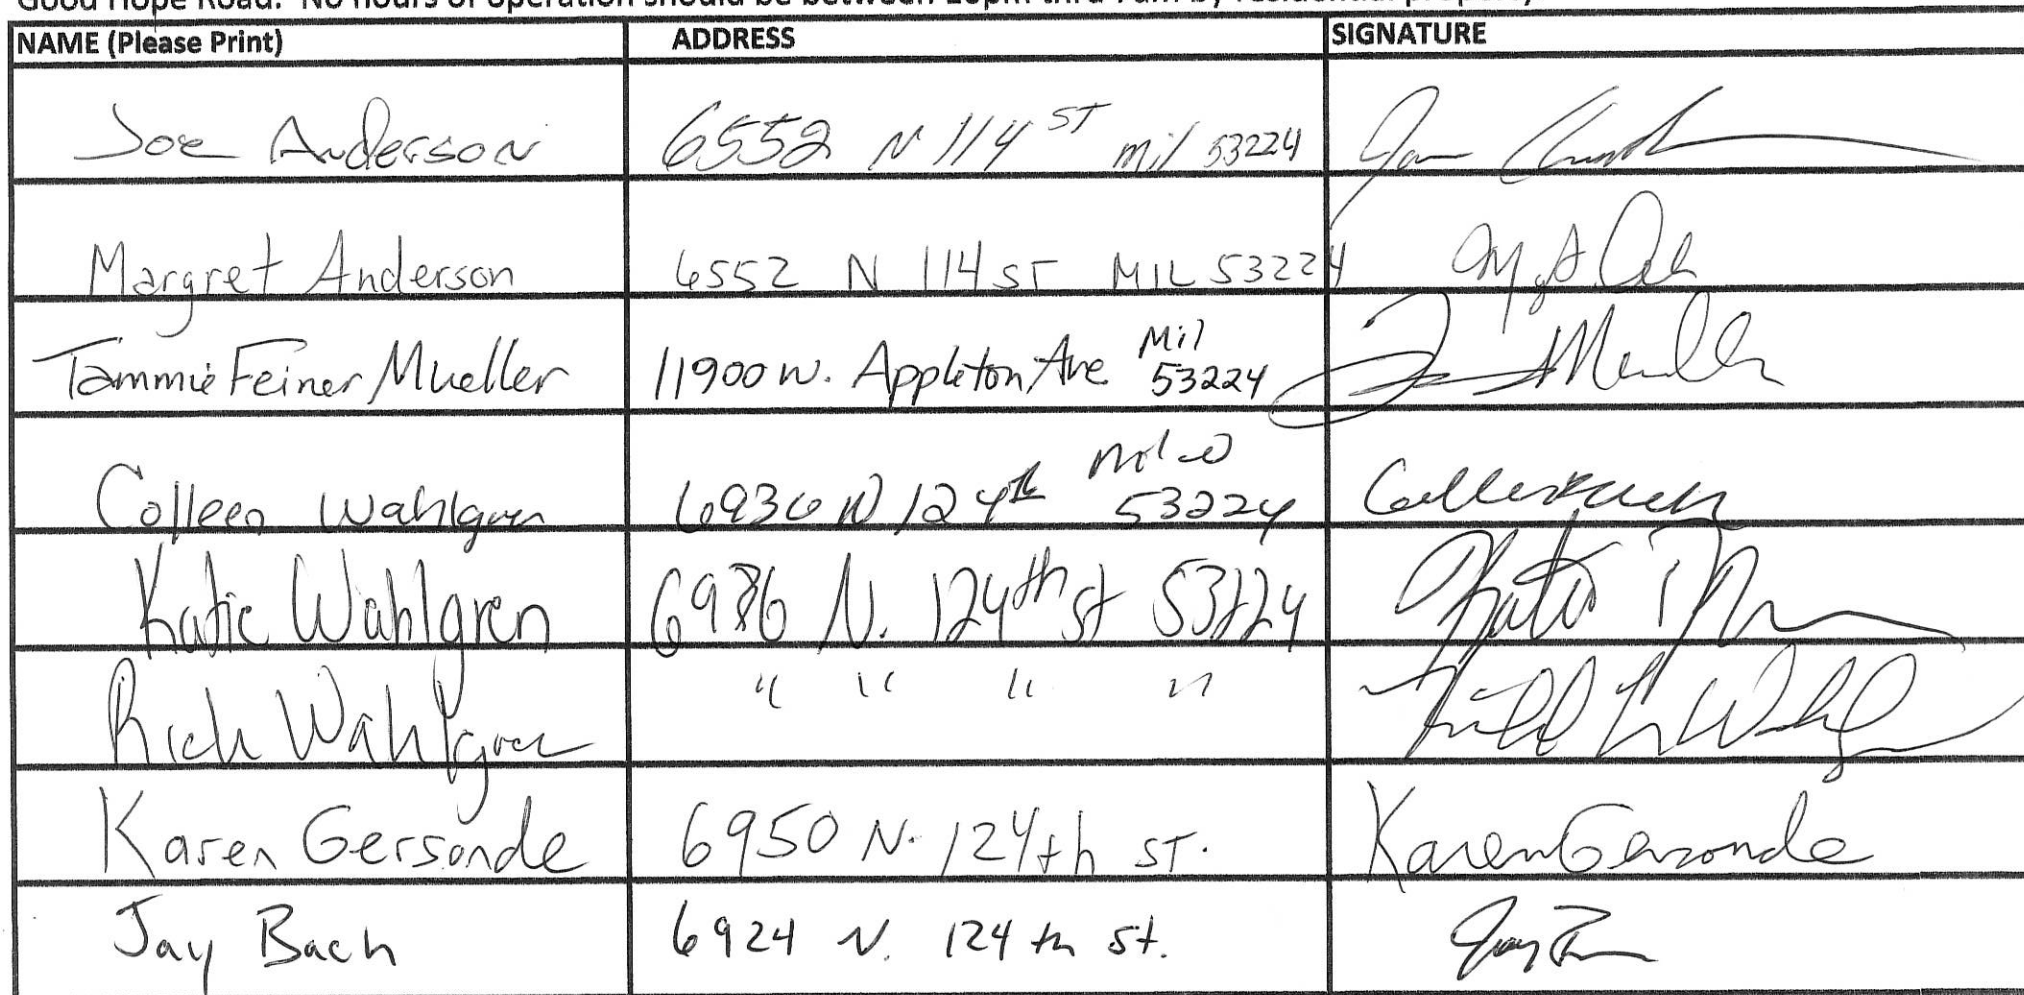 Good Hope Road. No hours of operation should be between 10pm thru 7am by residential property
NAME (Please Print) ADDRESS SIGNATURE
Joe Anderson 6552 N 114 ST mil 53224
Margret Anderson 6552 N 114 ST MIL 53224
Tammie Feiner Mueller 11900 W. Appleton Ave Mil 53224
Colleen Wahlgren 6936 N 124th 53224
Katie Wahlgren N. 124th st 53224 Katie
Rich Wahlgren " " " "
Karen Gersonde 6950 N. 124th ST. Karen Gersonde
Jay Bach 6924 N. 124th St. Jay